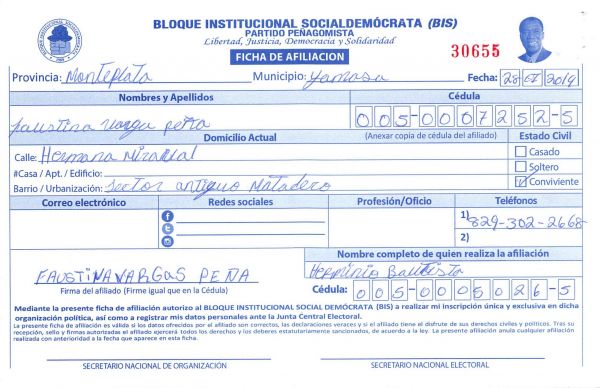 BLOQUE INSTITUCIONAL SOCIALDEMÓCRATA (BIS)
PARTIDO PEÑAGOMISTA
Libertad, Justicia, Democracia y Solidaridad
FICHA DE AFILIACION
30655
Provincia: Monteplata Municipio: Yamasa Fecha: 28-07-2019
Nombres y Apellidos Cédula
faustina varga peña 005-0007252-5
Domicilio Actual (Anexar copia de cédula del afiliado) Estado Civil
Calle: Hermana Mirabal Casado
#Casa / Apt. / Edificio: Soltero
Barrio / Urbanización: Sector antiguo Matadero Conviviente
Correo electrónico Redes sociales Profesión/Oficio Teléfonos
1) 829-302-2668
2)
Nombre completo de quien realiza la afiliación
FAUSTINA VARGAS PEÑA Herminia Bautista
Firma del afiliado (Firme igual que en la Cédula) Cédula: 005-0005026-5
Mediante la presente ficha de afiliación autorizo al BLOQUE INSTITUCIONAL SOCIAL DEMÓCRATA (BIS) a realizar mi inscripción única y exclusiva en dicha
organización política, así como a registrar mis datos personales ante la Junta Central Electoral.
La presente ficha de afiliación es válida si los datos ofrecidos por el afiliado son correctos, las declaraciones veraces y si el afiliado tiene el disfrute de sus derechos civiles y políticos. Tras su
recepción, sello y firmas autorizadas el afiliado ejercerá todos los derechos y los deberes estatutariamente sancionados, de acuerdo a la ley. La presente afiliación anula cualquier afiliación
realizada con anterioridad a la fecha que aparece en esta ficha.
SECRETARIO NACIONAL DE ORGANIZACIÓN SECRETARIO NACIONAL ELECTORAL